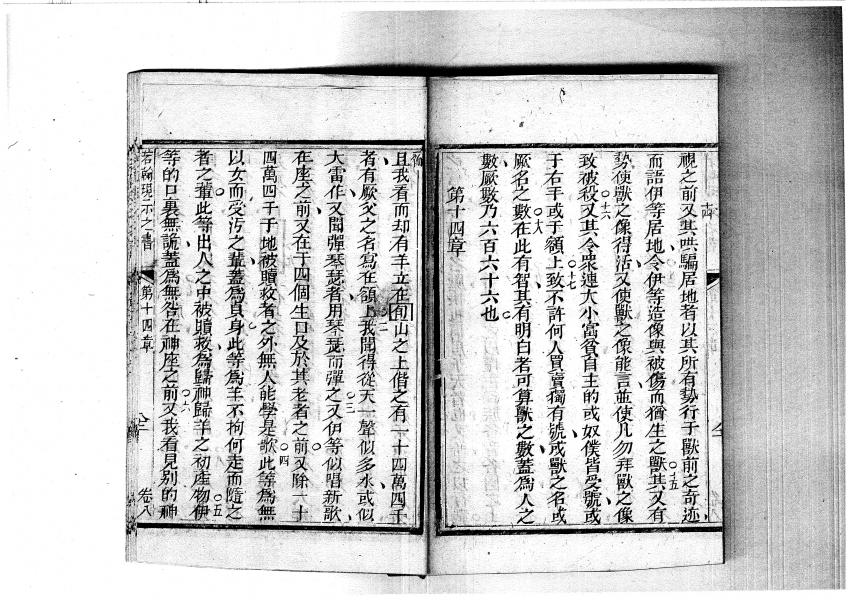 視之前又其哄騙居地者以其所有勢行于獸前之奇迹
十四
而語伊等居地令伊等造像與被傷而猶生之獸其又有
○十五
勢使獸之像得活又使獸之像能言並使凡勿拜獸之像
致被殺又其令衆連大小富貧自主的或奴僕皆受號或
○十六
于右手或于額上致不許何人買賣獨有號或獸之名或
○十七
厥名之數在此有智其有明白者可算獸之數蓋為人之
○十八
數厥數乃六百六十六也
第十四章
且我看而却有羊立在旬山之上偕之有一十四萬四千
者有厥父之名寫在額上我聞得從天一聲似多水或似
○二
大雷作又聞彈琴瑟者用琴瑟而彈之又伊等似唱新歌
○三
在座之前又在于四個生口及於其老者之前又除一十
四萬四千于地被贖救者之外無人能學是歌此等為無
○四
以女而受污之輩蓋為貞身此等為羊不拘何走而隨之
者之輩此等出人之中被贖救為歸神歸羊之初產物伊
○五
等的口裏無詭蓋為無咎在神座之前又我看見別的神
○六
若翰現示之書
第十四章
卷八